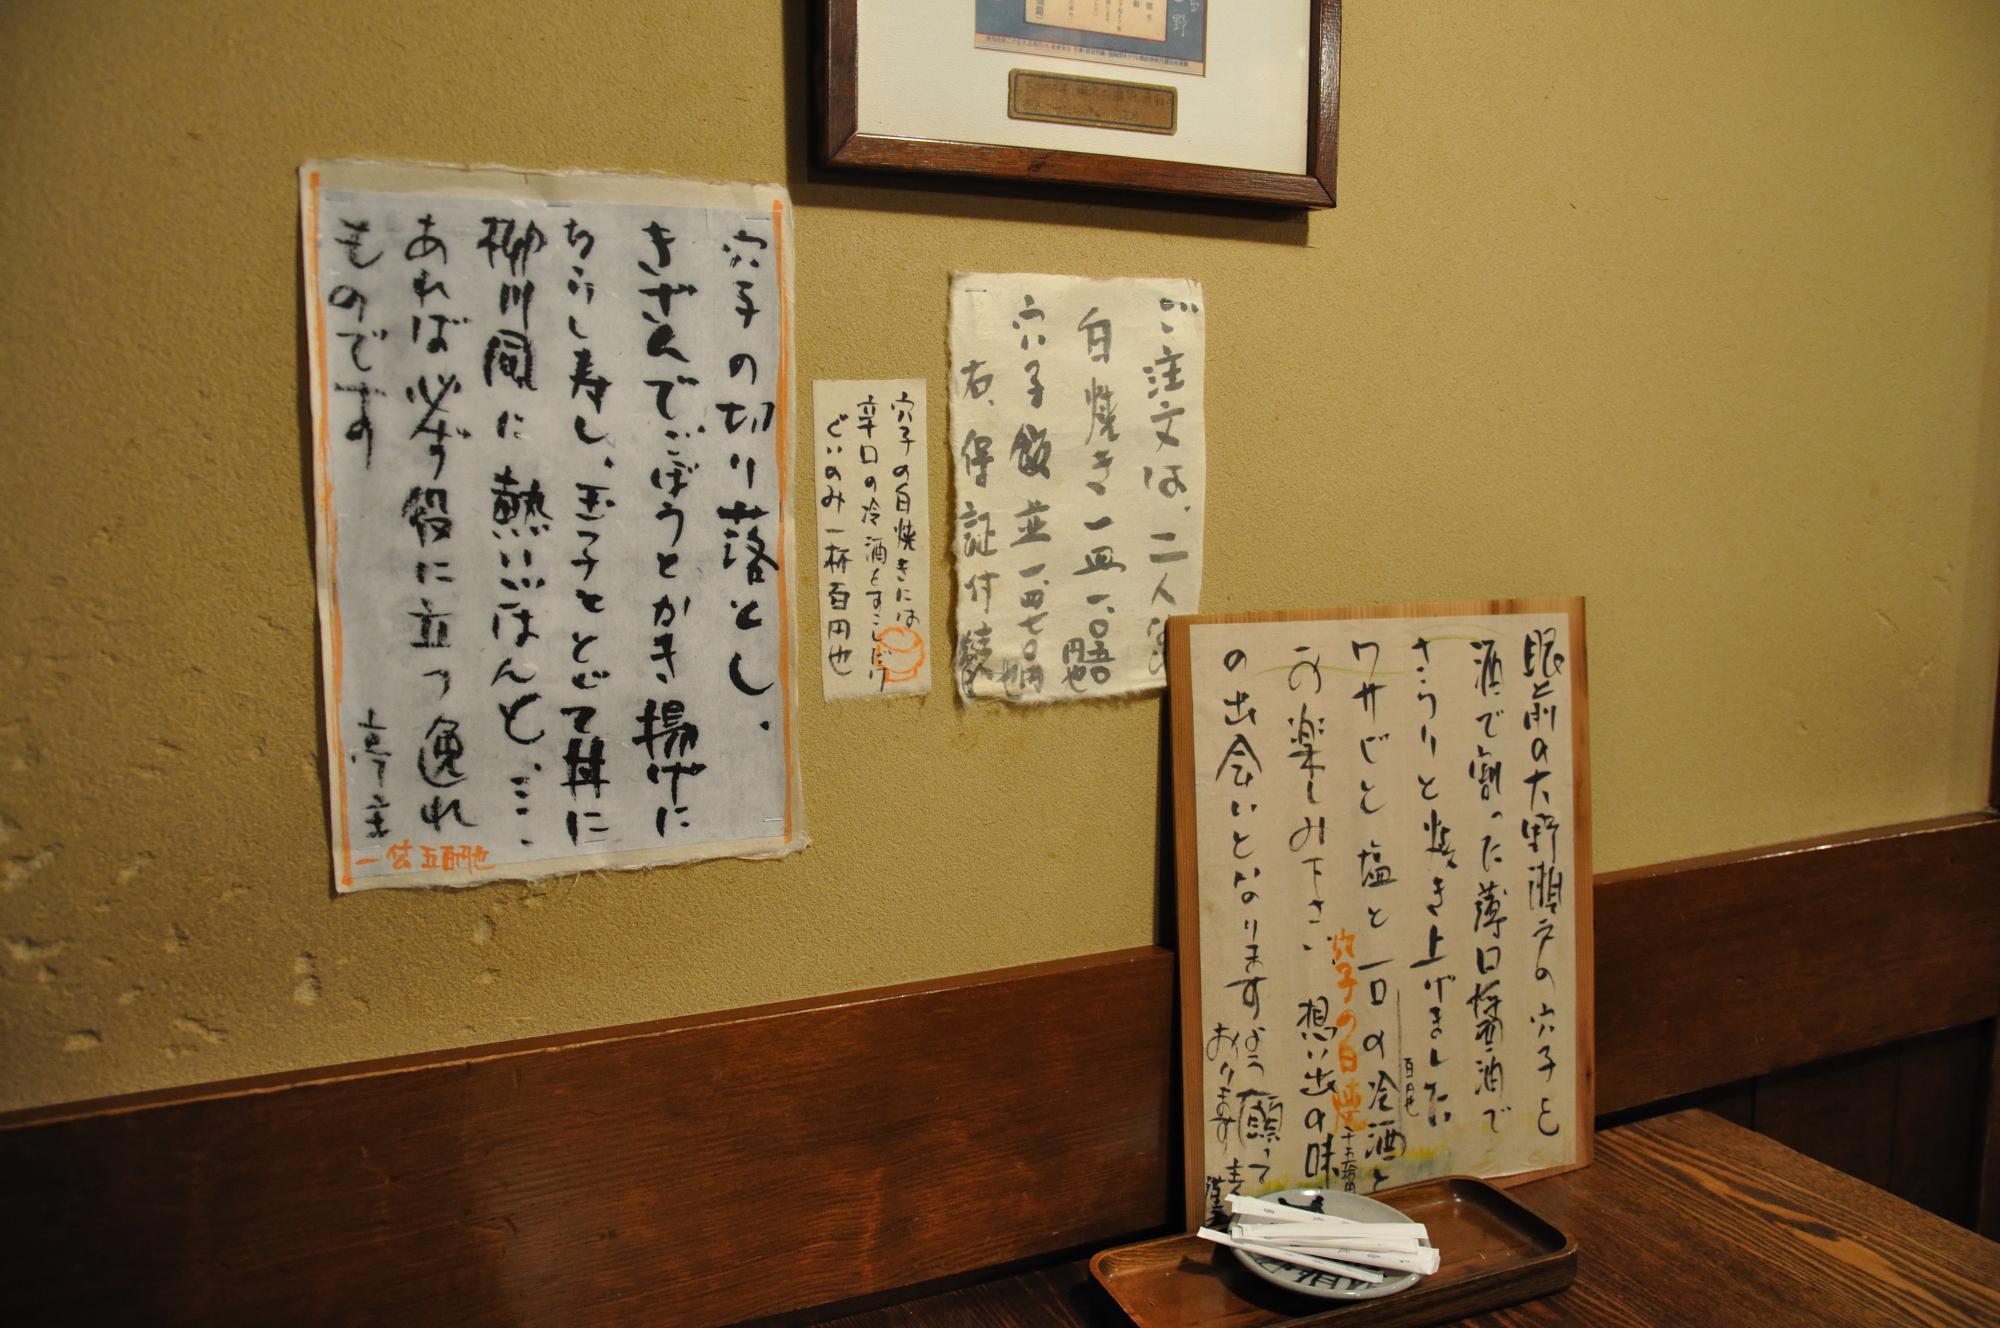 穴子の切り落とし、
きざんでごぼうとかき揚げに
ちらし寿し、玉子ととじて丼に
柳川風に熱いごはんと、…、
あれば必ず役に立つ優れ
ものです
亭主
五百円也
穴子の白焼きには
辛口の冷酒をすこしだけ
ぐいのみ一杯百円也
ご注文は、二人で
白焼き一皿一、〇五〇円也
穴子飯並一、四七〇円也
右、保証付
眼と前の大野瀬戸の穴子を
酒で割った薄口醤油で
さらりと焼き上げました
ワサビと塩と一口の冷酒と
百円也
お楽しみ下さい 想い出の味
穴子の白焼
の出会いとなりますよう願って
おります